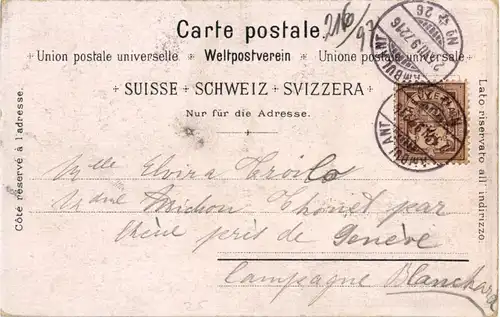 Carte postale.
216/97
Union postale universelle Weltpostverein Unione postale universale
SUISSE SCHWEIZ SVIZZERA
Nur für die Adresse.
Côté réservé à l'adresse.
Lato riservato all indirizzo.
AMBULANT
No 26
AMBULANT
Mlle Elvira Troilo
Mme Thonet par
près de Genève
Campagne Blanchard
25